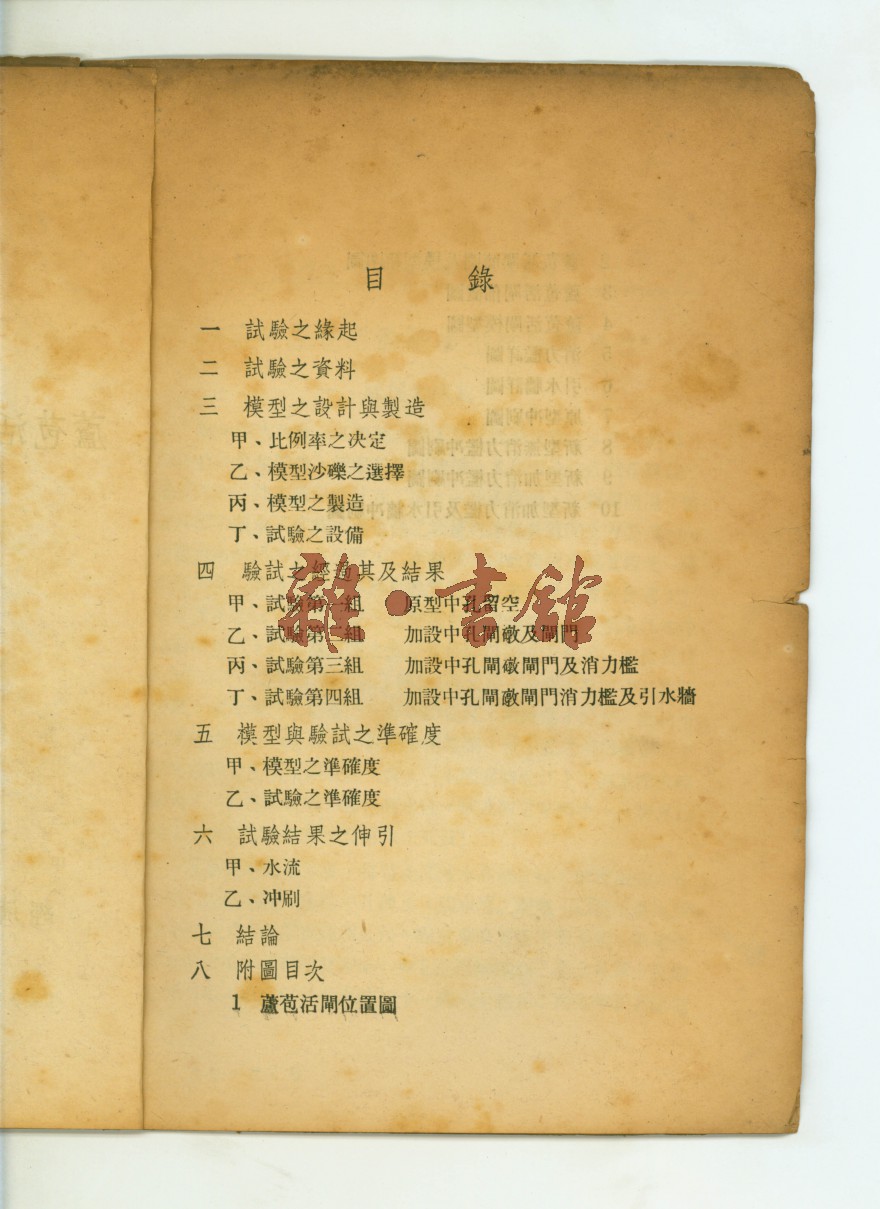 目 錄
一 試驗之緣起
二 試驗之資料
三 模型之設計與製造
甲、比例率之決定
乙、模型沙礫之選擇
丙、模型之製造
丁、試驗之設備
四 驗試之經過其及結果
甲、試驗第一組 原型中孔留空
乙、試驗第二組 加設中孔閘敵及閘門
丙、試驗第三組 加設中孔閘礅閘門及消力檻
丁、試驗第四組 加設中孔閘礅閘門消力檻及引水牆
五 模型與驗試之準確度
甲、模型之準確度
乙、試驗之準確度
六 試驗結果之伸引
甲、水流
乙、冲刷
七 結論
八 附圖目次
1 蘆苞活閘位置圖
雜·書館